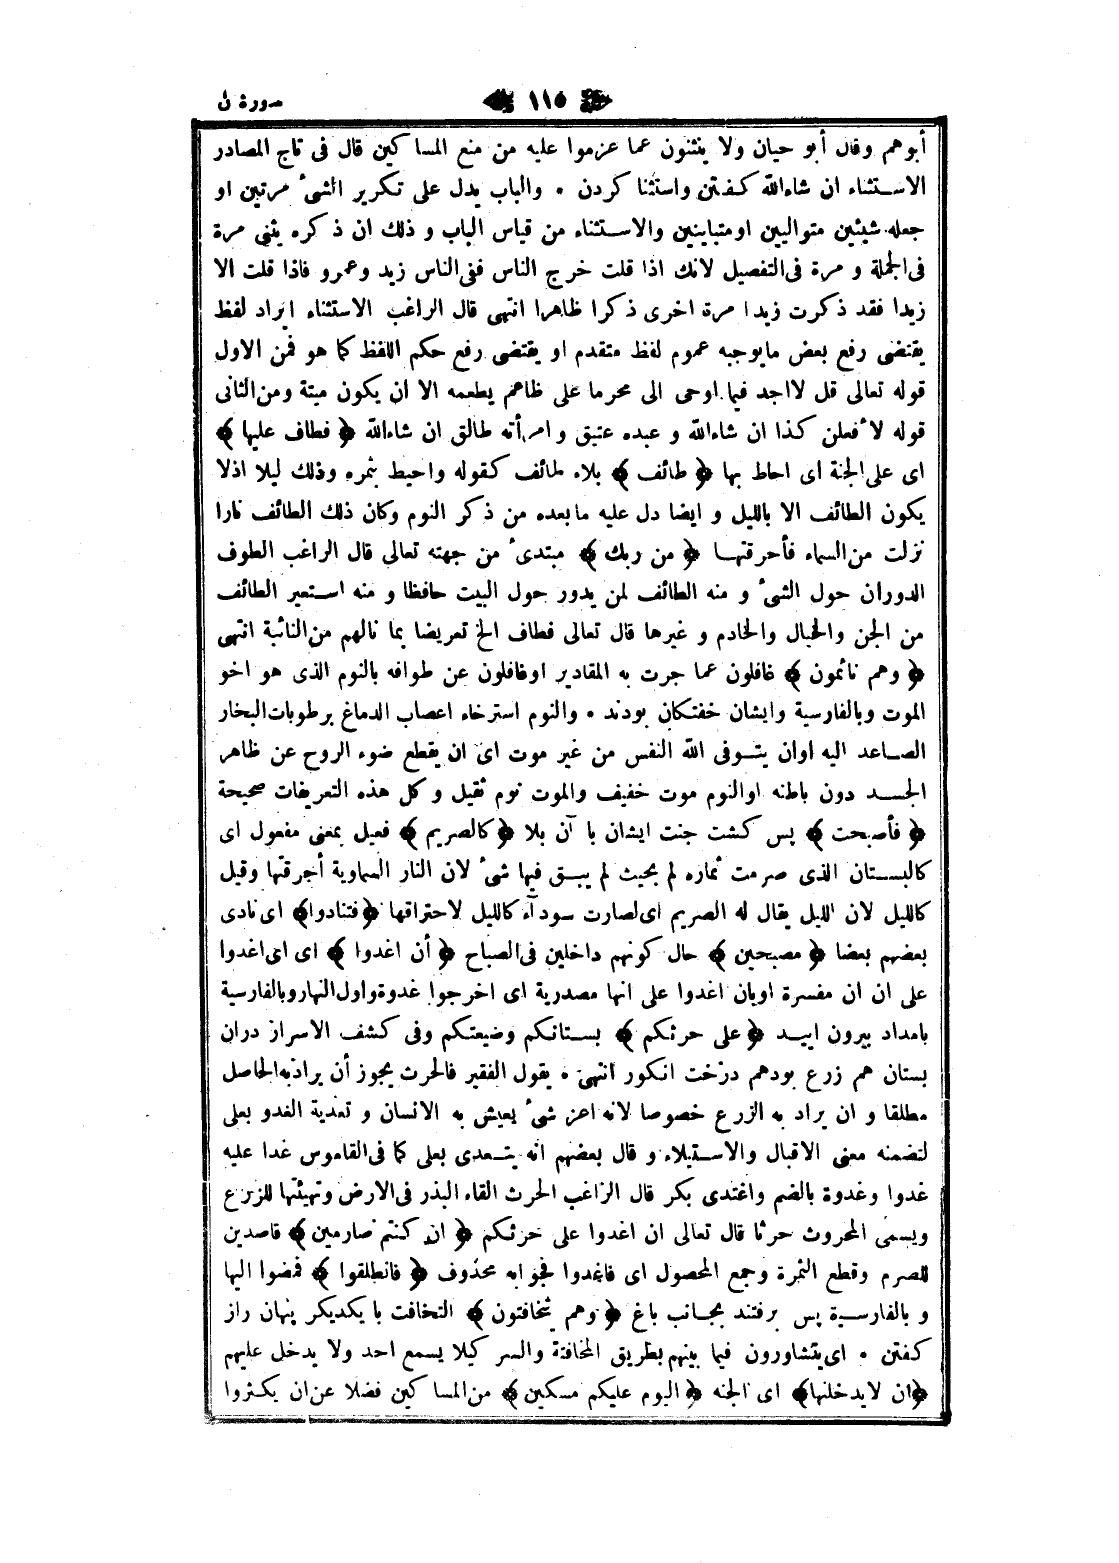 سورة ن
١١٥
أبوهم وقال أبو حيان ولا ينثنون عما عزموا عليه من منع المساكين قال فى تاج المصادر
الاستثناء ان شاءالله كفتن واستثنا كردن • والباب يدل على تكرير الشىء مرتين او
جعله شيئين متواليين او متباينين والاستثناء من قياس الباب و ذلك ان ذكره يثنى مرة
فى الجملة و مرة فى التفصيل لانك اذا قلت خرج الناس ففى الناس زيد وعمرو فاذا قلت الا
زيدا فقد ذكرت زيدا مرة اخرى ذكرا ظاهرا انتهى قال الراغب الاستثناء ايراد لفظ
يقتضى رفع بعض مايوجبه عموم لفظ متقدم او يقتضى رفع حكم اللفظ كما هو فمن الاول
قوله تعالى قل لااجد فيما اوحى الى محرما على طاعم يطعمه الا ان يكون ميتة ومن الثانى
قوله لأفعلن كذا ان شاءالله و عبده عتيق و امرأته طالق ان شاءالله ﴿ فطاف عليها ﴾
اى على الجنة اى احاط بها ﴿ طائف ﴾ بلاء طائف كقوله واحيط بثمره وذلك ليلا اذلا
يكون الطائف الا بالليل و ايضا دل عليه مابعده من ذكر النوم وكان ذلك الطائف نارا
نزلت من السماء فأحرقتها ﴿ من ربك ﴾ مبتدئ من جهته تعالى قال الراغب الطوف
الدوران حول الشىء و منه الطائف لمن يدور حول البيت حافظا و منه استعير الطائف
من الجن والخيال والخادم و غيرها قال تعالى فطاف الخ تعريضا بما نالهم من النائبة انتهى
﴿ وهم نائمون ﴾ غافلون عما جرت به المقادير اوغافلون عن طوافه بالنوم الذى هو اخو
الموت وبالفارسية وايشان خفتكان بودند • والنوم استرخاء اعصاب الدماغ برطوبات البخار
الصاعد اليه اوان يتوفى الله النفس من غير موت اى ان يقطع ضوء الروح عن ظاهر
الجسد دون باطنه اوالنوم موت خفيف والموت نوم ثقيل و كل هذه التعريفات صحيحة
﴿ فأصبحت ﴾ پس كشت جنت ايشان با آن بلا ﴿ كالصريم ﴾ فعيل بمعنى مفعول اى
كالبستان الذى صرمت ثماره لم بحيث لم يبق فيها شىء لان النار السماوية أحرقتها وقيل
كالليل لان الليل يقال له الصريم اى لصارت سودآء كالليل لاحتراقها ﴿ فتنادوا﴾ اى نادى
بعضهم بعضا ﴿ مصبحين ﴾ حال كونهم داخلين فى الصباح ﴿ أن اغدوا ﴾ اى اى اغدوا
على ان ان مفسرة اوبان اغدوا على انها مصدرية اى اخرجوا غدوة واول النهار وبالفارسية
بامداد بيرون اييد ﴿ على حرثكم ﴾ بستانكم وضيعتكم وفى كشف الاسرار دران
بستان هم زرع بودهم درخت انكور انتهى • يقول الفقير فالحرث يجوز أن يراد به الحاصل
مطلقا و ان يراد به الزرع خصوصا لانه اعز شىء يعيش به الانسان و تعدية الغدو بعلى
لتضمنه معنى الاقبال والاستيلاء و قال بعضهم انه يتعدى بعلى كما فى القاموس غدا عليه
غدوا وغدوة بالضم واغتدى بكر قال الراغب الحرث القاء البذر فى الارض وتهيئتها للزرع
ويسمى المحروث حرثا قال تعالى ان اغدوا على حرثكم ﴿ ان كنتم صارمين ﴾ قاصدين
للصرم وقطع الثمرة وجمع المحصول اى فاغدوا فجوابه محذوف ﴿ فانطلقوا ﴾ فمضوا اليها
و بالفارسية پس برفتند بجانب باغ ﴿ وهم يتخافتون ﴾ التخافت با يكديكر پنهان راز
كفتن • اى يتشاورون فيما بينهم بطريق المخافتة والسر كيلا يسمع احد ولا يدخل عليهم
﴿ان لايدخلنها﴾ اى الجنه ﴿ اليوم عليكم مسكين ﴾ من المساكين فضلا عن ان يكثروا